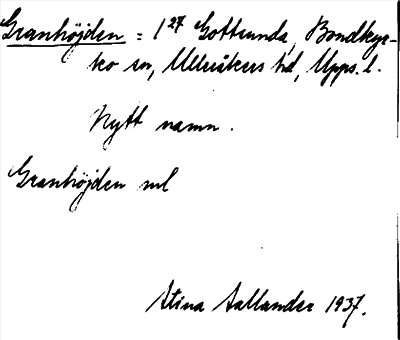 Granhöjden = 1²⁷ Gottsunda, Bondkyr-
ko sn, Ulleråkers hd, Upps. l.
Nytt namn.
Granhöjden ml
Stina Sallander 1937.